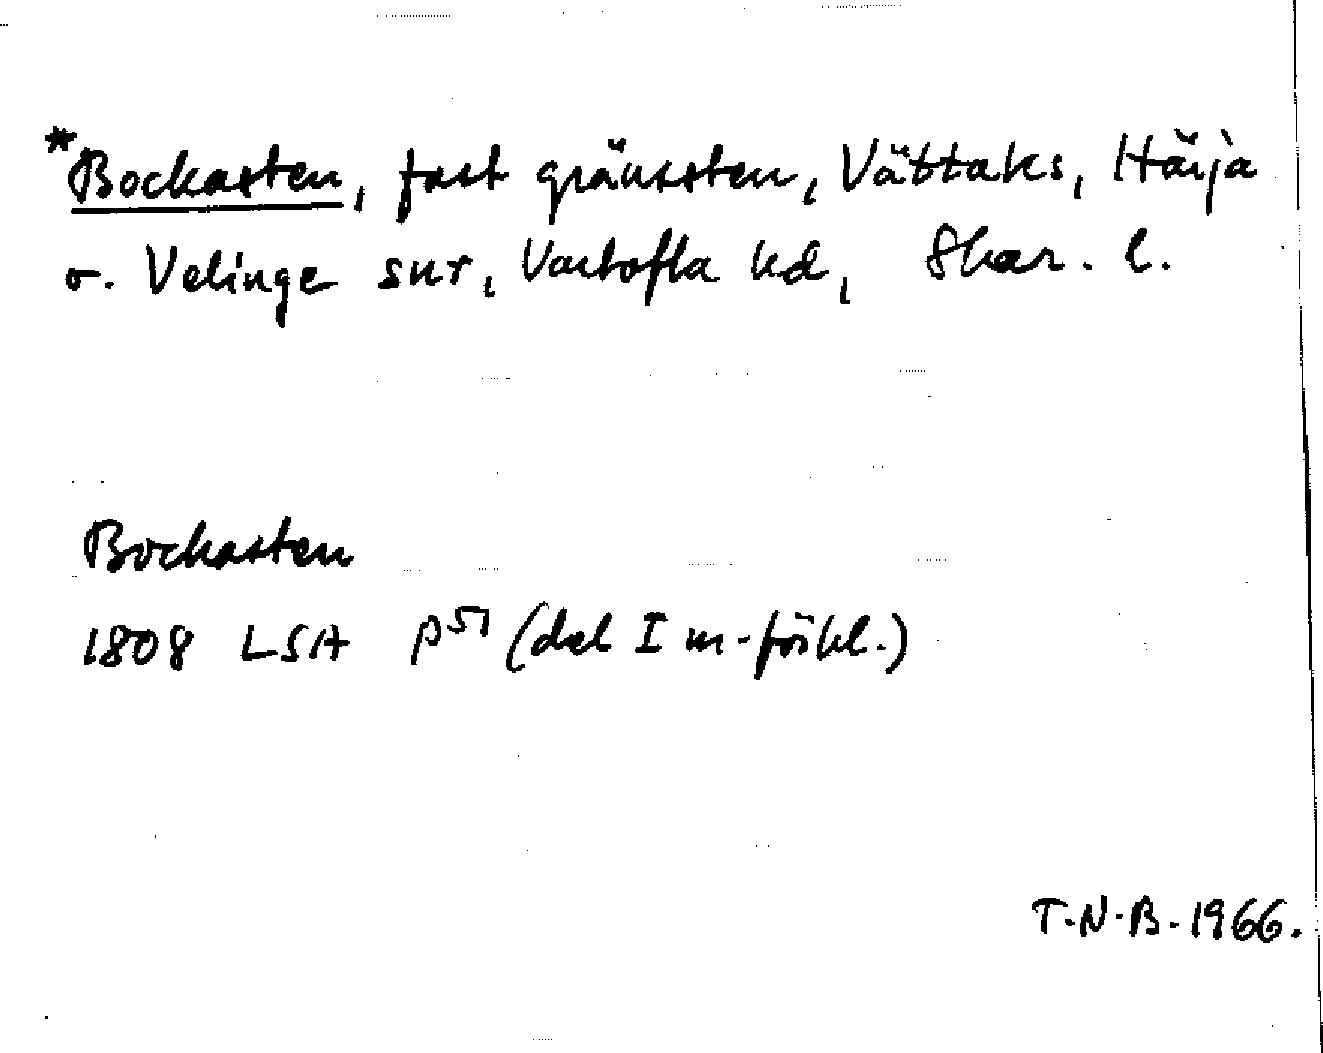 *Bockasten, fast gränssten, Vättaks, Härja
o. Velinge snr, Vartofta hd, Skar. l.
Bockasten
1808 LSA P⁵¹ (del I m-förkl.)
T.N.B. 1966.